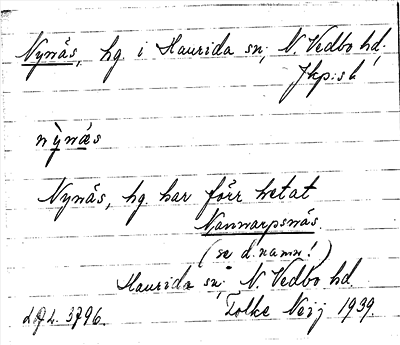 Nynäs, hg i Haurida sn, N. Vedbo hd,
Jkp:s l.
nỳnä́s
Nynäs, hg har förr hetat
Nannarpsnäs
(se d. namn!)
Haurida sn, N. Vedbo hd.
3796. Folke Neij 1939.